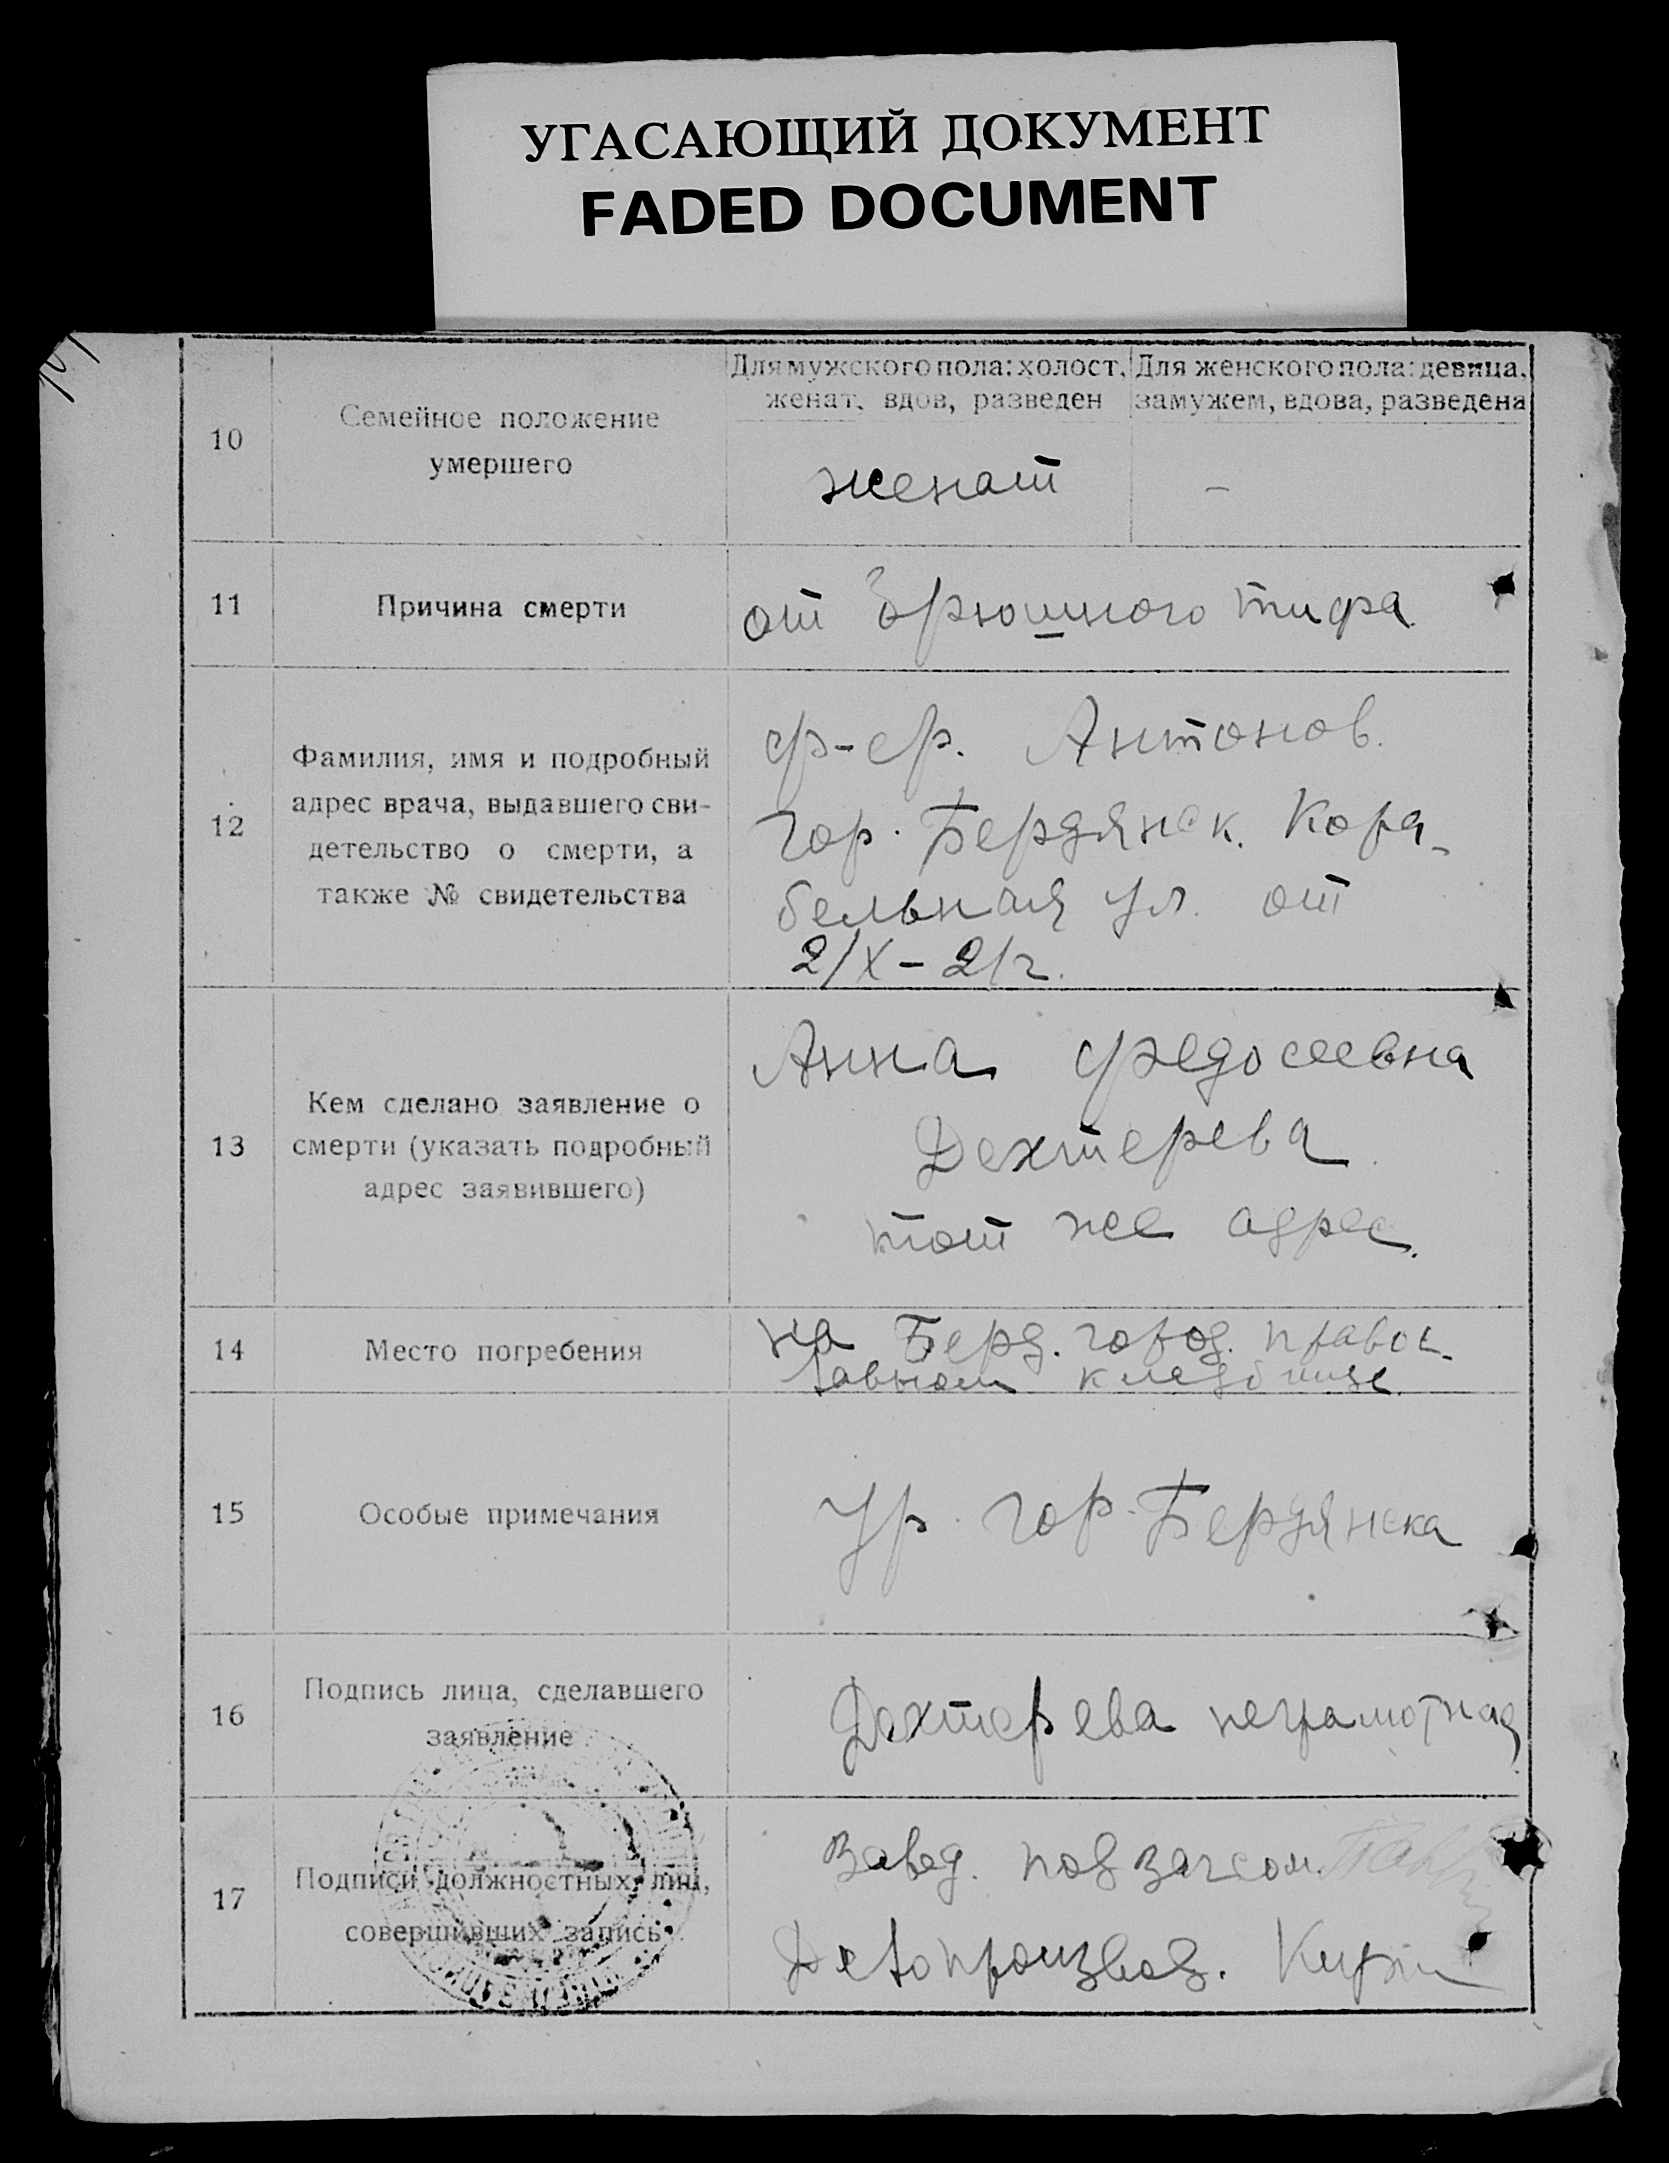 УГАСАЮЩИЙ ДОКУМЕНТ
FADED DOCUMENT
10
Семейное положение
умершего
Для мужского пола: холост,
женат, вдов, разведен
Для женского пола: девица,
замужем, вдова, разведена
женат
–
11
Причина смерти
от брюшного тифа
12
Фамилия, имя и подробный
адрес врача, выдавшего сви-
детельство о смерти, а
также № свидетельства
ф-ер. Антонов.
гор. Бердянск. Кора-
бельная ул. от
2/X – 21г.
13
Кем сделано заявление о
смерти (указать подробный
адрес заявившего)
Анна Федосеевна
Дехтерева
тот же адрес.
14
Место погребения
на Берд. город. правос-
лавном кладбище
15
Особые примечания
Ур. гор. Бердянска
16
Подпись лица, сделавшего
заявление
Дехтерева неграмотная
17
Подписи должностных лиц,
совершивших запись
Завед. подзагсом
Делопроизвод.